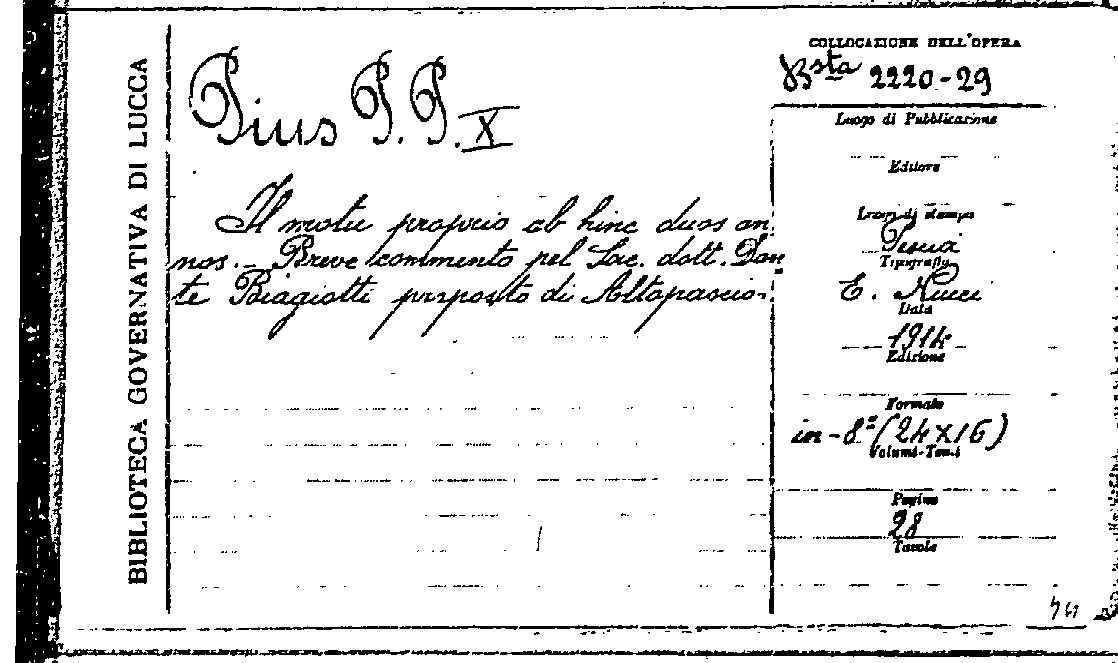 BIBLIOTECA GOVERNATIVA DI LUCCA
Pius P.P. X
Il motu proprio ab hinc duos an
nos. - Breve commento pel Sac. dott. Dan
te Biagiotti preposto di Altopascio.
COLLOCAZIONE DELL'OPERA
Bsta 2220-29
Luogo di Pubblicazione
Editore
Luogo di stampa
Pescia
Tipografia
E. Nucci
Data
1914
Edizione
Formato
in-8° (24x16)
Volumi-Tomi
Pagine
28
Tavole